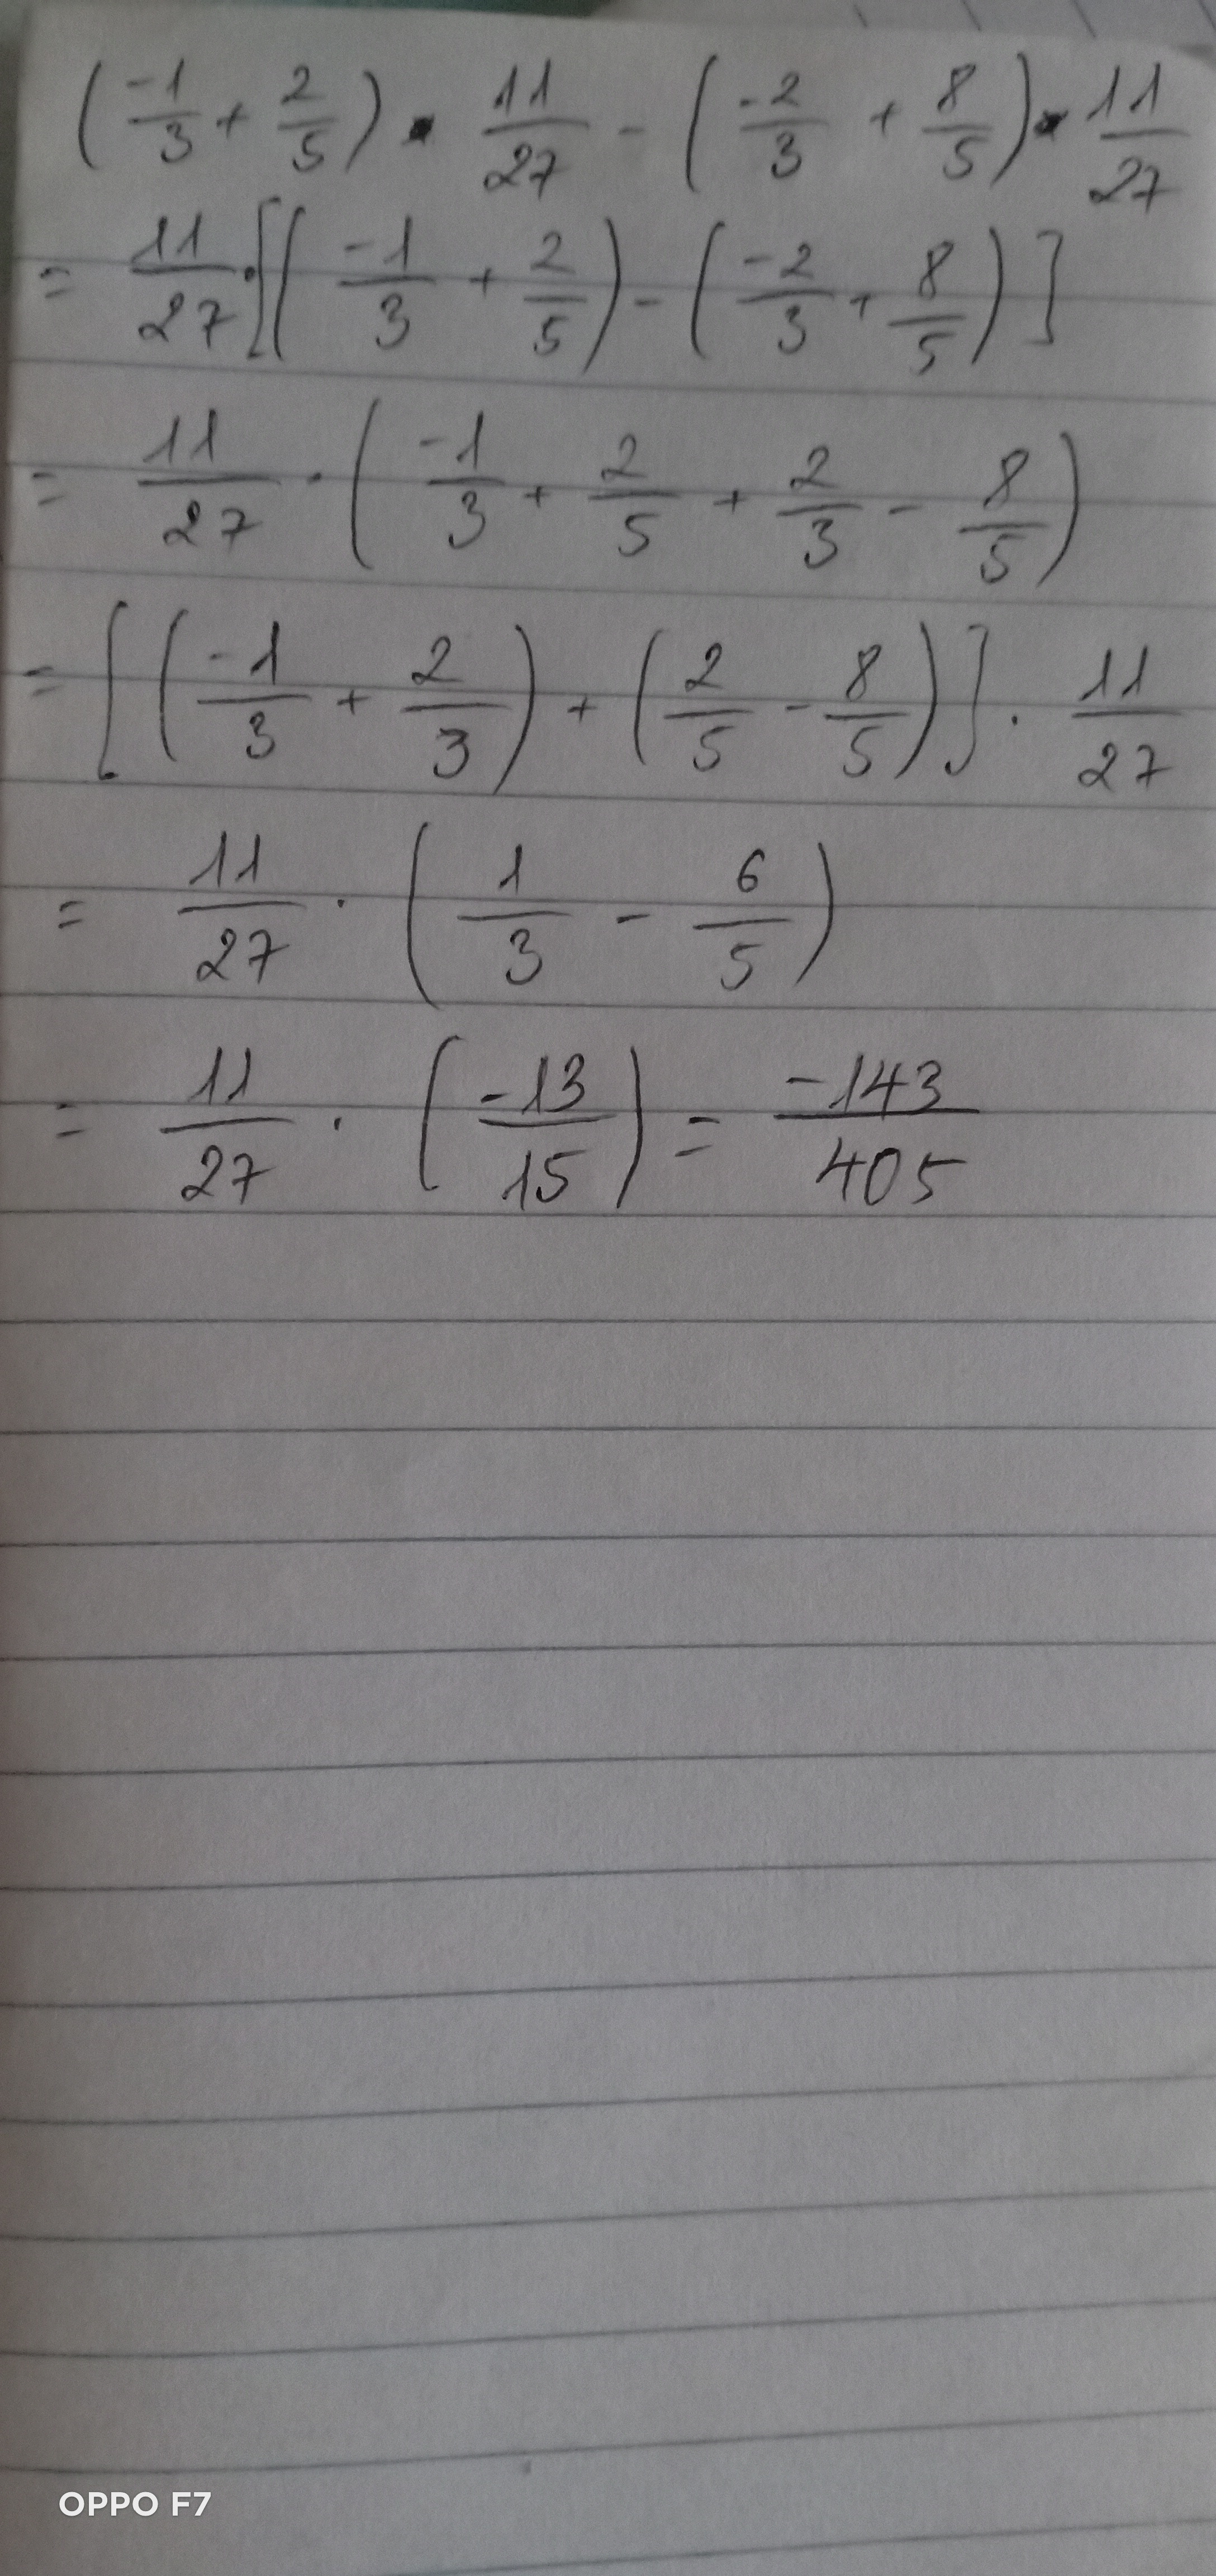 (-1/3 + 2/5) · 11/27 - (-2/3 + 8/5) · 11/27
= 11/27 · [(-1/3 + 2/5) - (-2/3 + 8/5)]
= 11/27 · (-1/3 + 2/5 + 2/3 - 8/5)
= [(-1/3 + 2/3) + (2/5 - 8/5)] · 11/27
= 11/27 · (1/3 - 6/5)
= 11/27 · (-13/15) = -143/405
OPPO F7